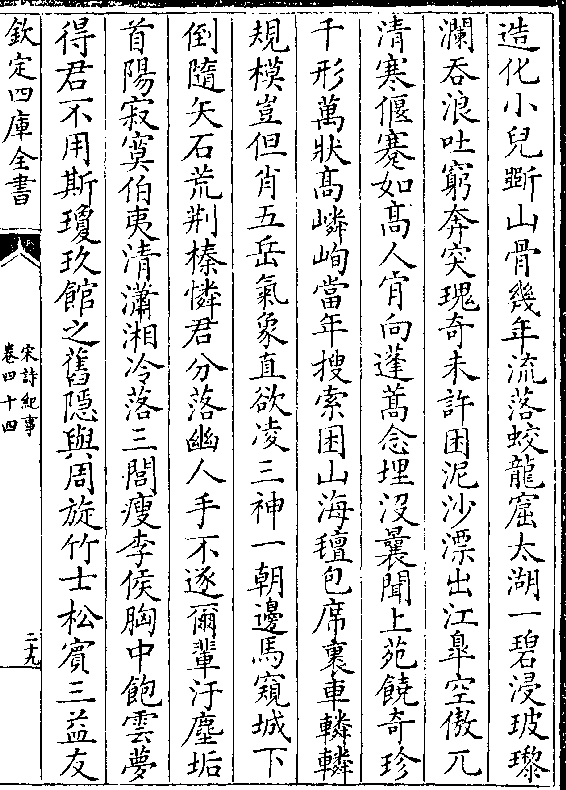 造化小兒斲山骨幾年流落蛟龍窟太湖一碧浸玻瓈
瀾吞浪吐窮奔突瑰奇未許困泥沙漂出江臯空傲兀
清寒偃蹇如髙人肯向蓬蒿念埋沒曩聞上苑饒奇珍
千形萬狀髙嶙峋當年搜索困山海氊包席裹車轔轔
規模豈但肖五岳氣象直欲凌三神一朝邊馬窺城下
倒隨矢石荒荆榛憐君分落幽人手不逐爾輩汙塵垢
首陽寂寞伯夷清瀟湘冷落三閭瘦李侯胸中飽雲夢
得君不用斯瓊玖館之舊隱與周旋竹士松賓三益友
欽定四庫全書
宋詩紀事
卷四十四
二十九